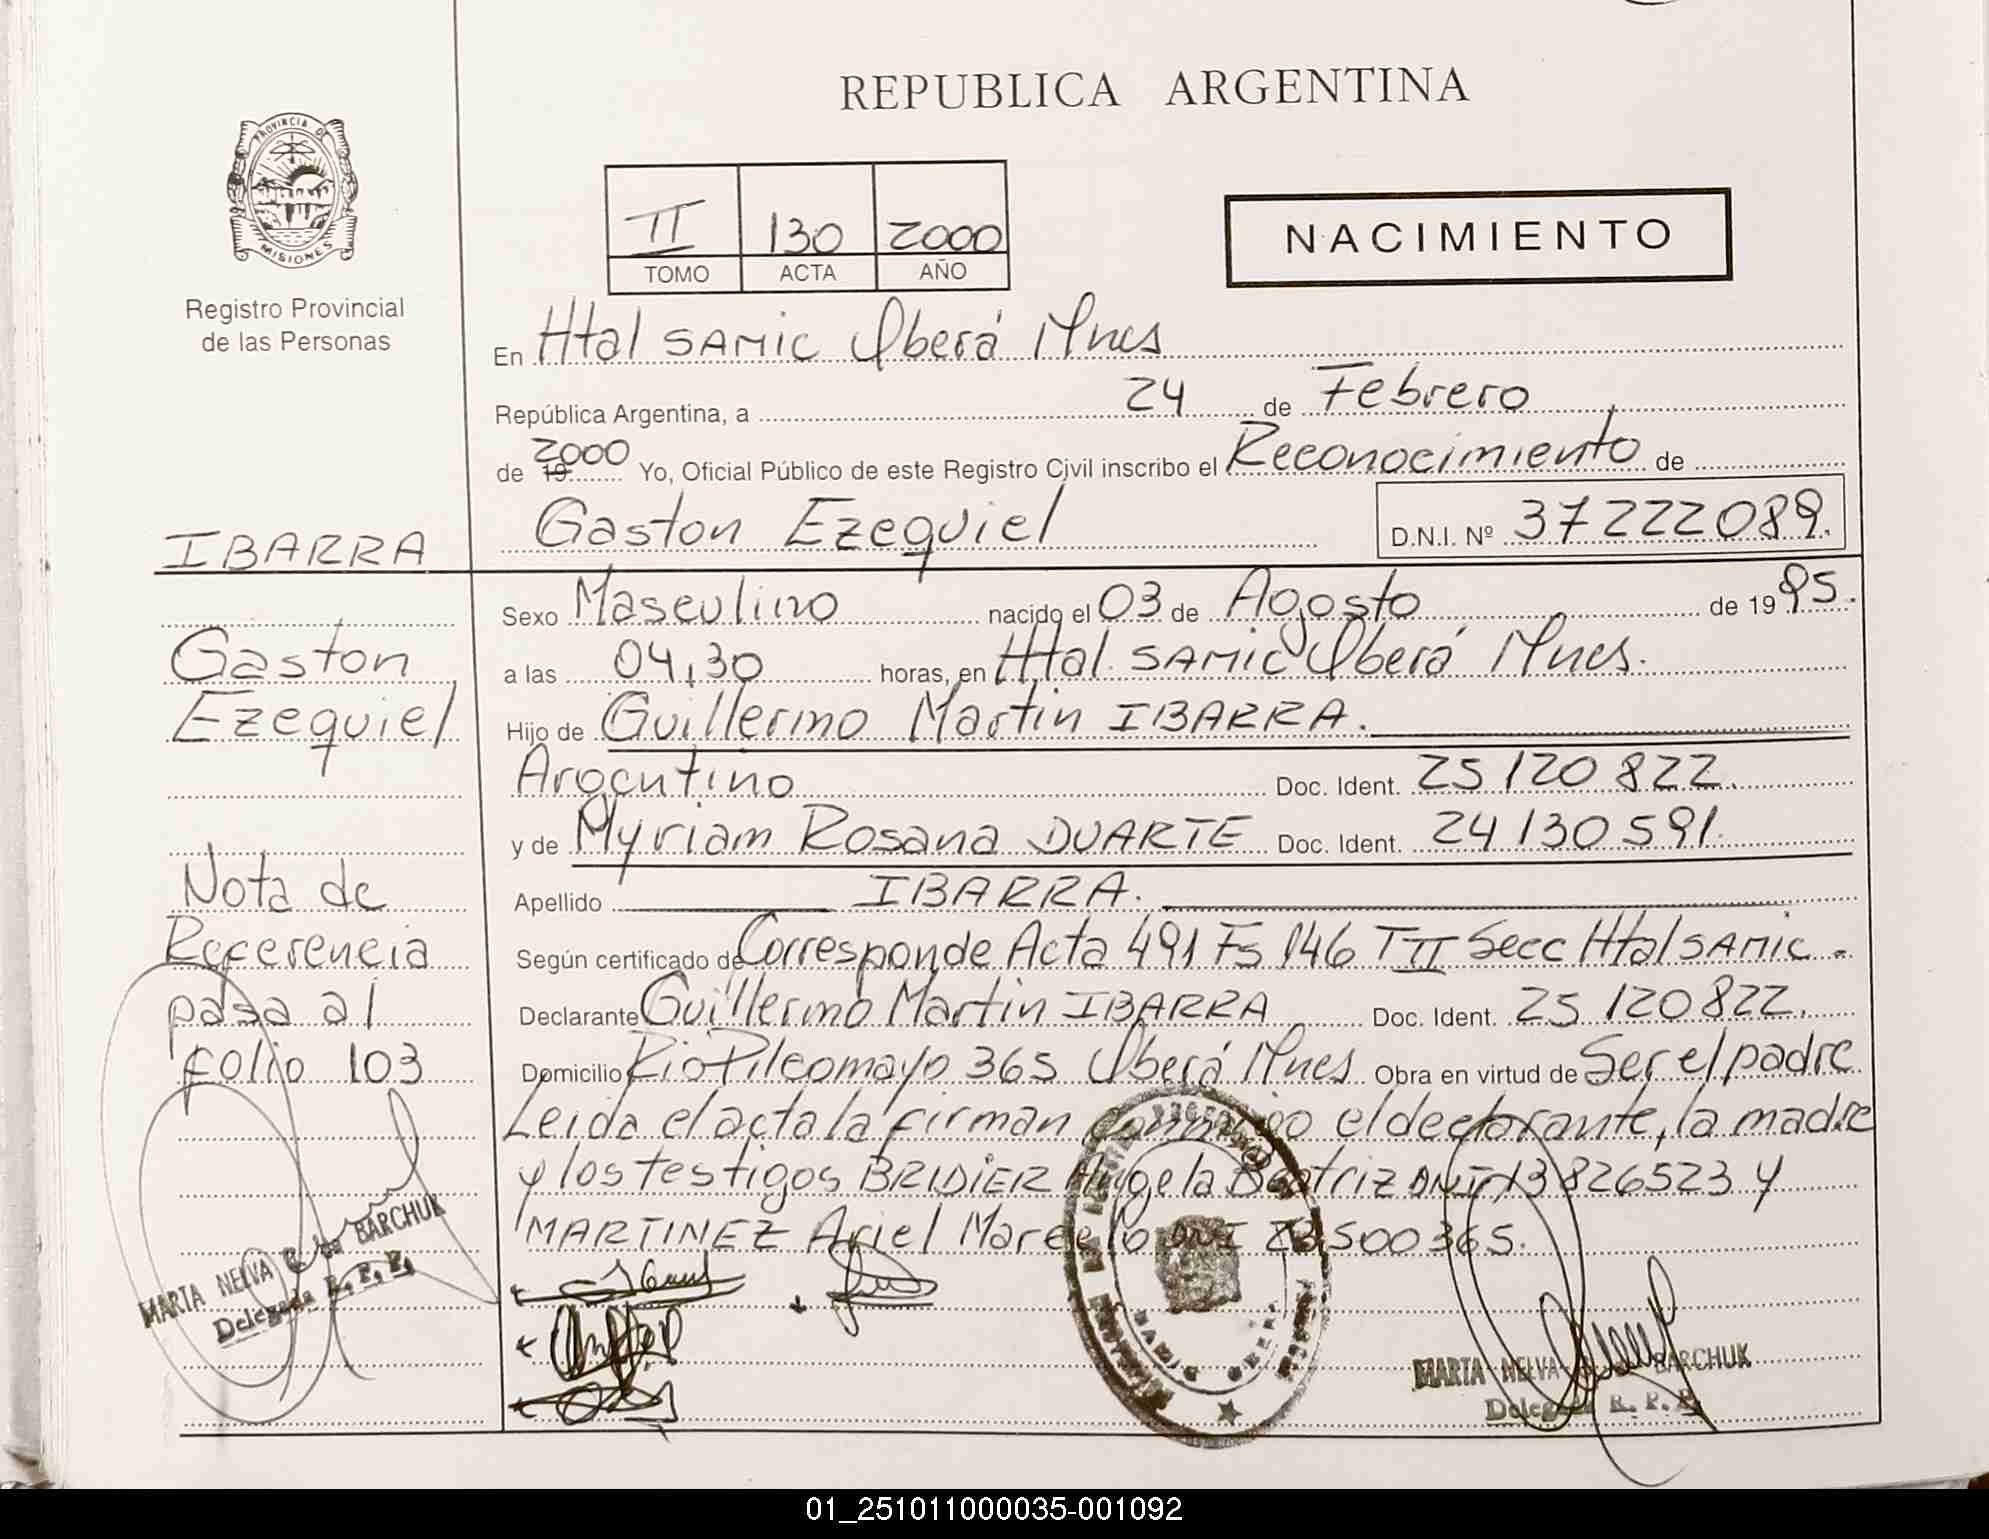 REPUBLICA ARGENTINA
PROVINCIA DE
MISIONES
Registro Provincial
de las Personas
II 130 2000
TOMO ACTA AÑO
NACIMIENTO
En Htal SAMIC Oberá Mnes
República Argentina, a 24 de Febrero
de 19 2000 Yo, Oficial Público de este Registro Civil inscribo el Reconocimiento de
Gaston Ezequiel D.N.I. Nº 37222089.
IBARRA
Gaston
Ezequiel
Nota de
Referencia
pasa al
folio 103
MARTA NELVA BARCHUK
Delegada R. P. P.
Sexo Masculino nacido el 03 de Agosto de 1995.
a las 04,30 horas, en Htal. SAMIC Oberá Mnes.
Hijo de Guillermo Martin IBARRA.
Argentino Doc. Ident. 25 120 822.
y de Myriam Rosana DUARTE Doc. Ident. 24 130 591.
Apellido IBARRA.
Según certificado de Corresponde Acta 491 Fs 146 T II Secc Htal SAMIC.
Declarante Guillermo Martin IBARRA Doc. Ident. 25 120 822.
Domicilio Rio Pilcomayo 365 Oberá Mnes Obra en virtud de Ser el padre
Leida el acta la firman conmigo el declarante, la madre
y los testigos BRIDIER Angela Beatriz DNI 13826523 y
MARTINEZ Ariel Marcelo DNI 23500365.
MARTA NELVA BARCHUK
Delegada R. P. P.
01_251011000035-001092